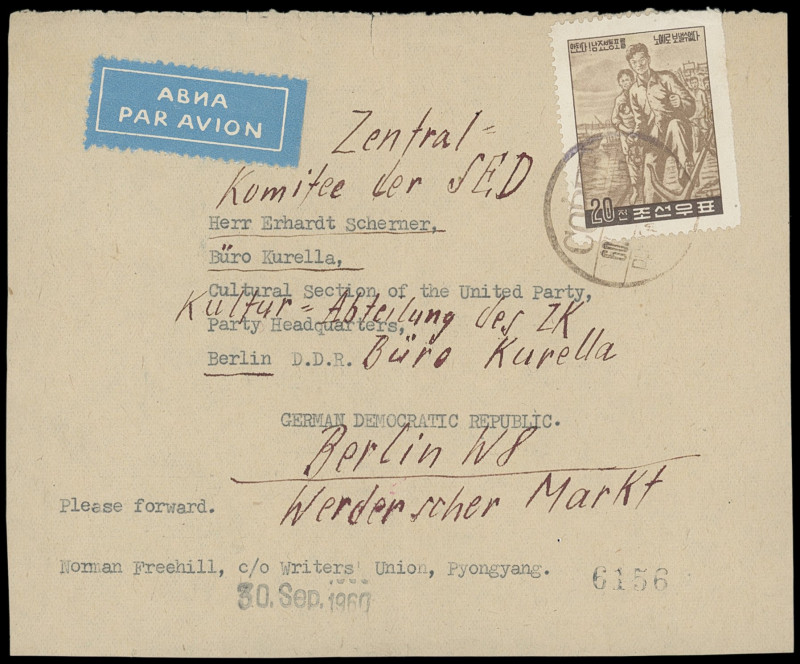 АВИА
PAR AVION
20 전 조선우표
Zentral=
Komitee der SED
Herr Erhardt Scherner,
Büro Kurella,
Cultural Section of the United Party,
Kultur=Abteilung des ZK
Party Headquarters,
Berlin D.D.R. Büro Kurella
GERMAN DEMOCRATIC REPUBLIC.
Berlin W8
Werderscher Markt
Please forward.
Norman Freehill, c/o Writers' Union, Pyongyang.
6156
30. Sep. 1960